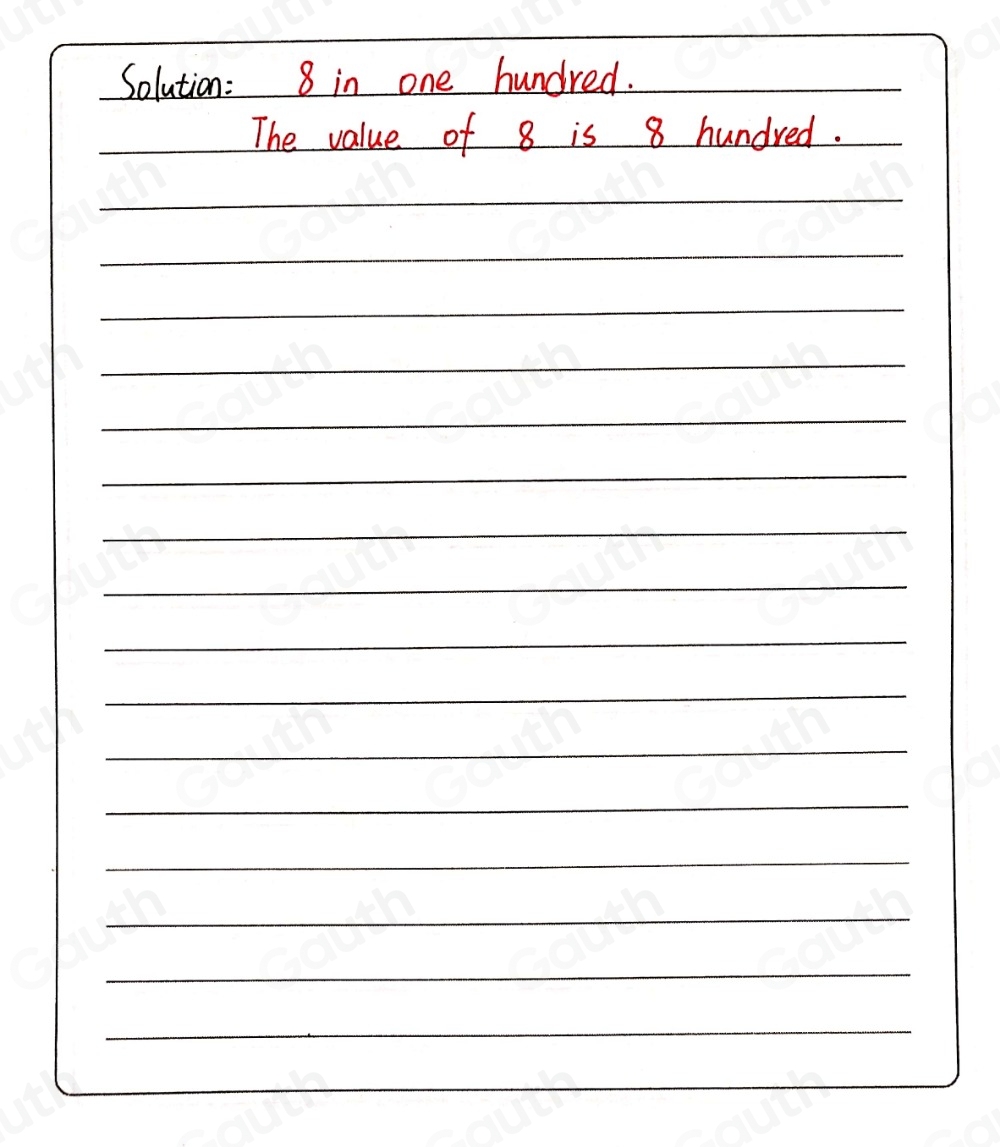 Solution: 8 in one hundred.
The value of 8 is 8 hundred.